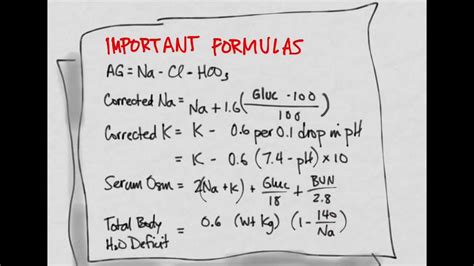 IMPORTANT FORMULAS
AG = Na - Cl - HCO3
Corrected Na = Na + 1.6 (Gluc - 100 / 100)
Corrected K = K - 0.6 per 0.1 drop in pH
= K - 0.6 (7.4 - pH) x 10
Serum Osm = 2(Na + K) + Gluc/18 + BUN/2.8
Total Body H2O Deficit = 0.6 (Wt Kg) (1 - 140/Na)